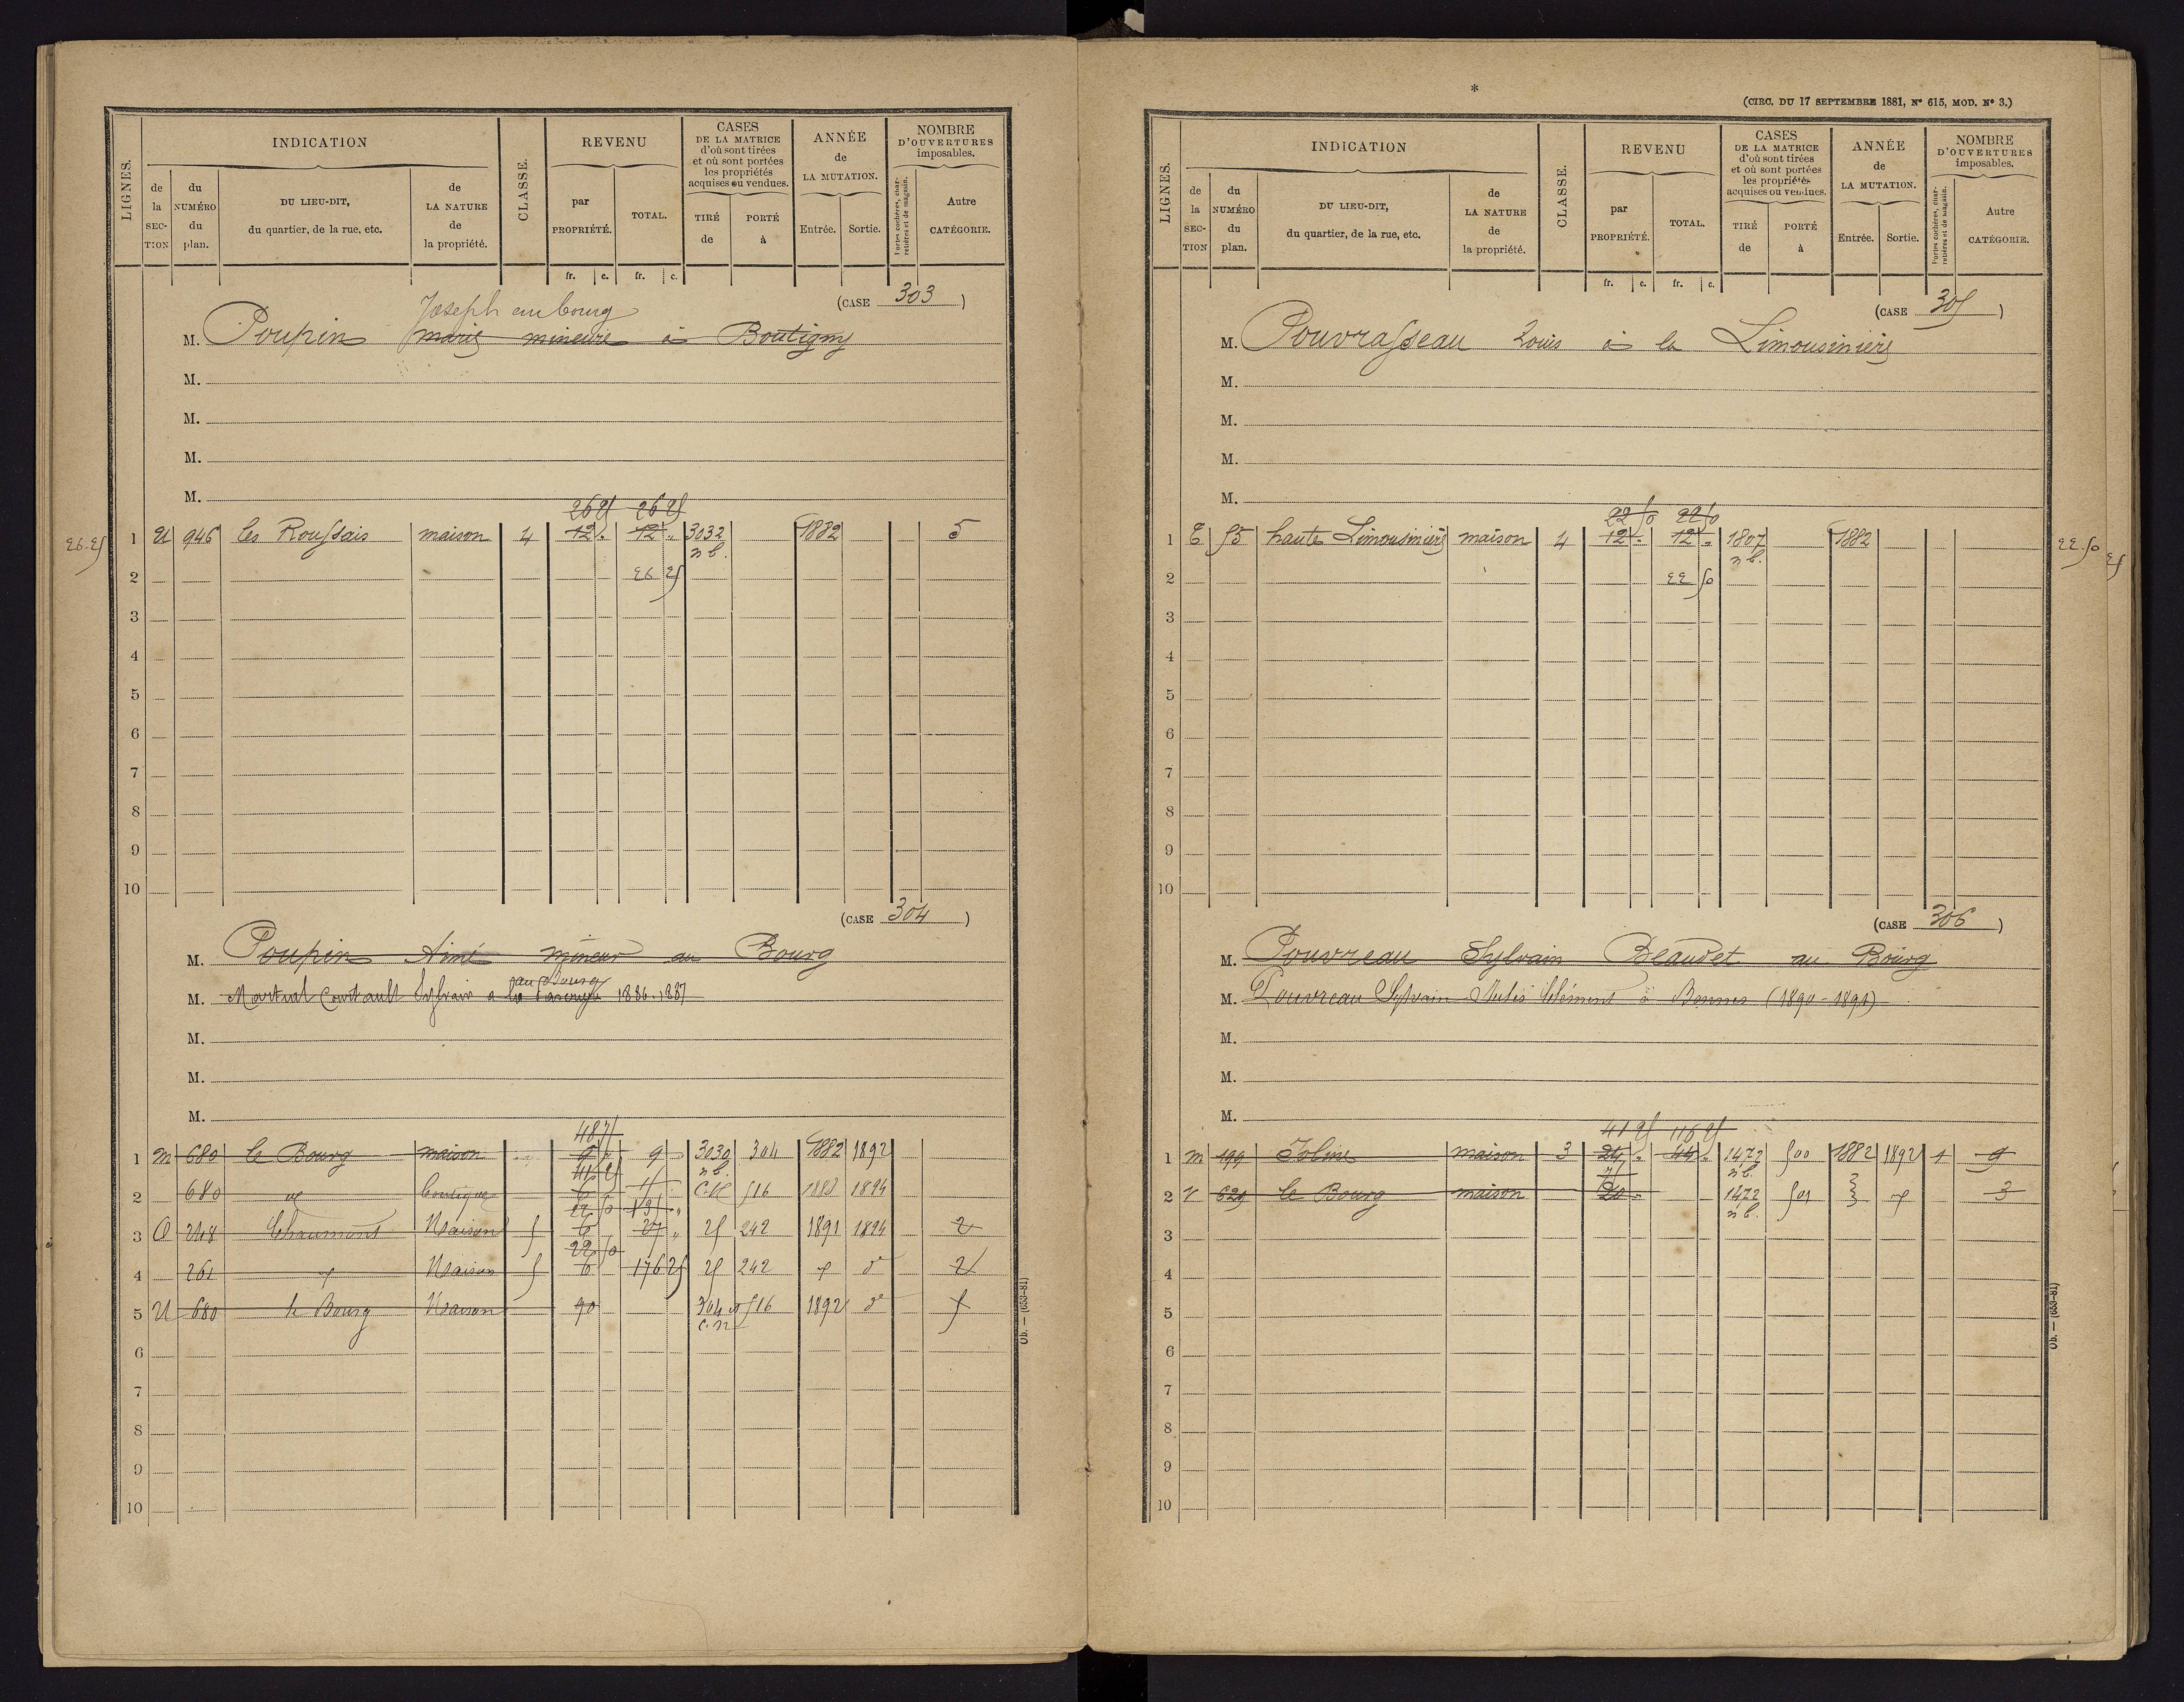 LIGNES.
INDICATION
de la SECTION
du NUMÉRO du plan.
DU LIEU-DIT, du quartier, de la rue, etc.
de LA NATURE de la propriété.
CLASSE.
REVENU
par PROPRIÉTÉ.
TOTAL.
CASES DE LA MATRICE d'où sont tirées et où sont portées les propriétés acquises ou vendues.
TIRÉ de
PORTÉ à
ANNÉE de LA MUTATION.
Entrée.
Sortie.
NOMBRE D'OUVERTURES imposables.
Portes cochères, charretières et de magasin.
Autre CATÉGORIE.
fr. c. fr. c.
(CASE 303)
Joseph au bourg
M. Poupin marie mineure à Boutigny
M.
M.
M.
M.
26 25 26 25
26.25 1 U 946 les Roussais maison 4 12 " 12 " 3032 1882 5
n b.
2 26 25
3
4
5
6
7
8
9
10
(CASE 304)
M. Poupin Aimé mineur au Bourg
au Bourg
M. Martial Courtault Sylvain a 1886-1887
M.
M.
M.
48 75
1 M 680 le Bourg maison 9 3030 304 1882 1892
n b.
41 25
2 680 boutique 6 516 1883 1894
22 50
3 O 248 Chaumont Maison 5 6 27 " 25 242 1891 1894 2
22 50
4 261 Maison 5 6 176 25 25 242 d° 2
5 U 680 le Bourg Maison 90 304 516 1892 d° 5
C.N
6
7
8
9
10
Ob. — (653-81)
*
(CIRC. DU 17 SEPTEMBRE 1881, N° 615, MOD. N° 3.)
LIGNES.
INDICATION
de la SECTION
du NUMÉRO du plan.
DU LIEU-DIT, du quartier, de la rue, etc.
de LA NATURE de la propriété.
CLASSE.
REVENU
par PROPRIÉTÉ.
TOTAL.
CASES DE LA MATRICE d'où sont tirées et où sont portées les propriétés acquises ou vendues.
TIRÉ de
PORTÉ à
ANNÉE de LA MUTATION.
Entrée.
Sortie.
NOMBRE D'OUVERTURES imposables.
Portes cochères, charretières et de magasin.
Autre CATÉGORIE.
fr. c. fr. c.
(CASE 305)
M. Pouvrasseau Louis à la Limousinière
M.
M.
M.
M.
22 50 22 50
1 E 55 haute Limousinière maison 4 12 " 12 " 1807 1882 22.50
n b.
2 22 50
3
4
5
6
7
8
9
10
(CASE 306)
M. Pouvreau Sylvain Beaudet au Bourg
M. Pouvreau Sylvain Jules Clément à Bonnes (1890-1891)
M.
M.
M.
41 25 116 25
1 M 199 maison 3 24 " 44 " 1472 500 1882 1892 1 9
n b.
75
2 V 629 le Bourg maison 20 " 1472 501 3
n b.
3
4
5
6
7
8
9
10
Ob. — (653-81)